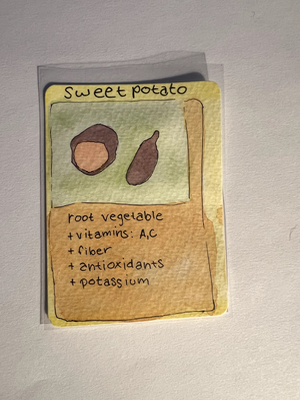 sweet potato
root vegetable
+ vitamins: A,C
+ fiber
+ antioxidants
+ potassium